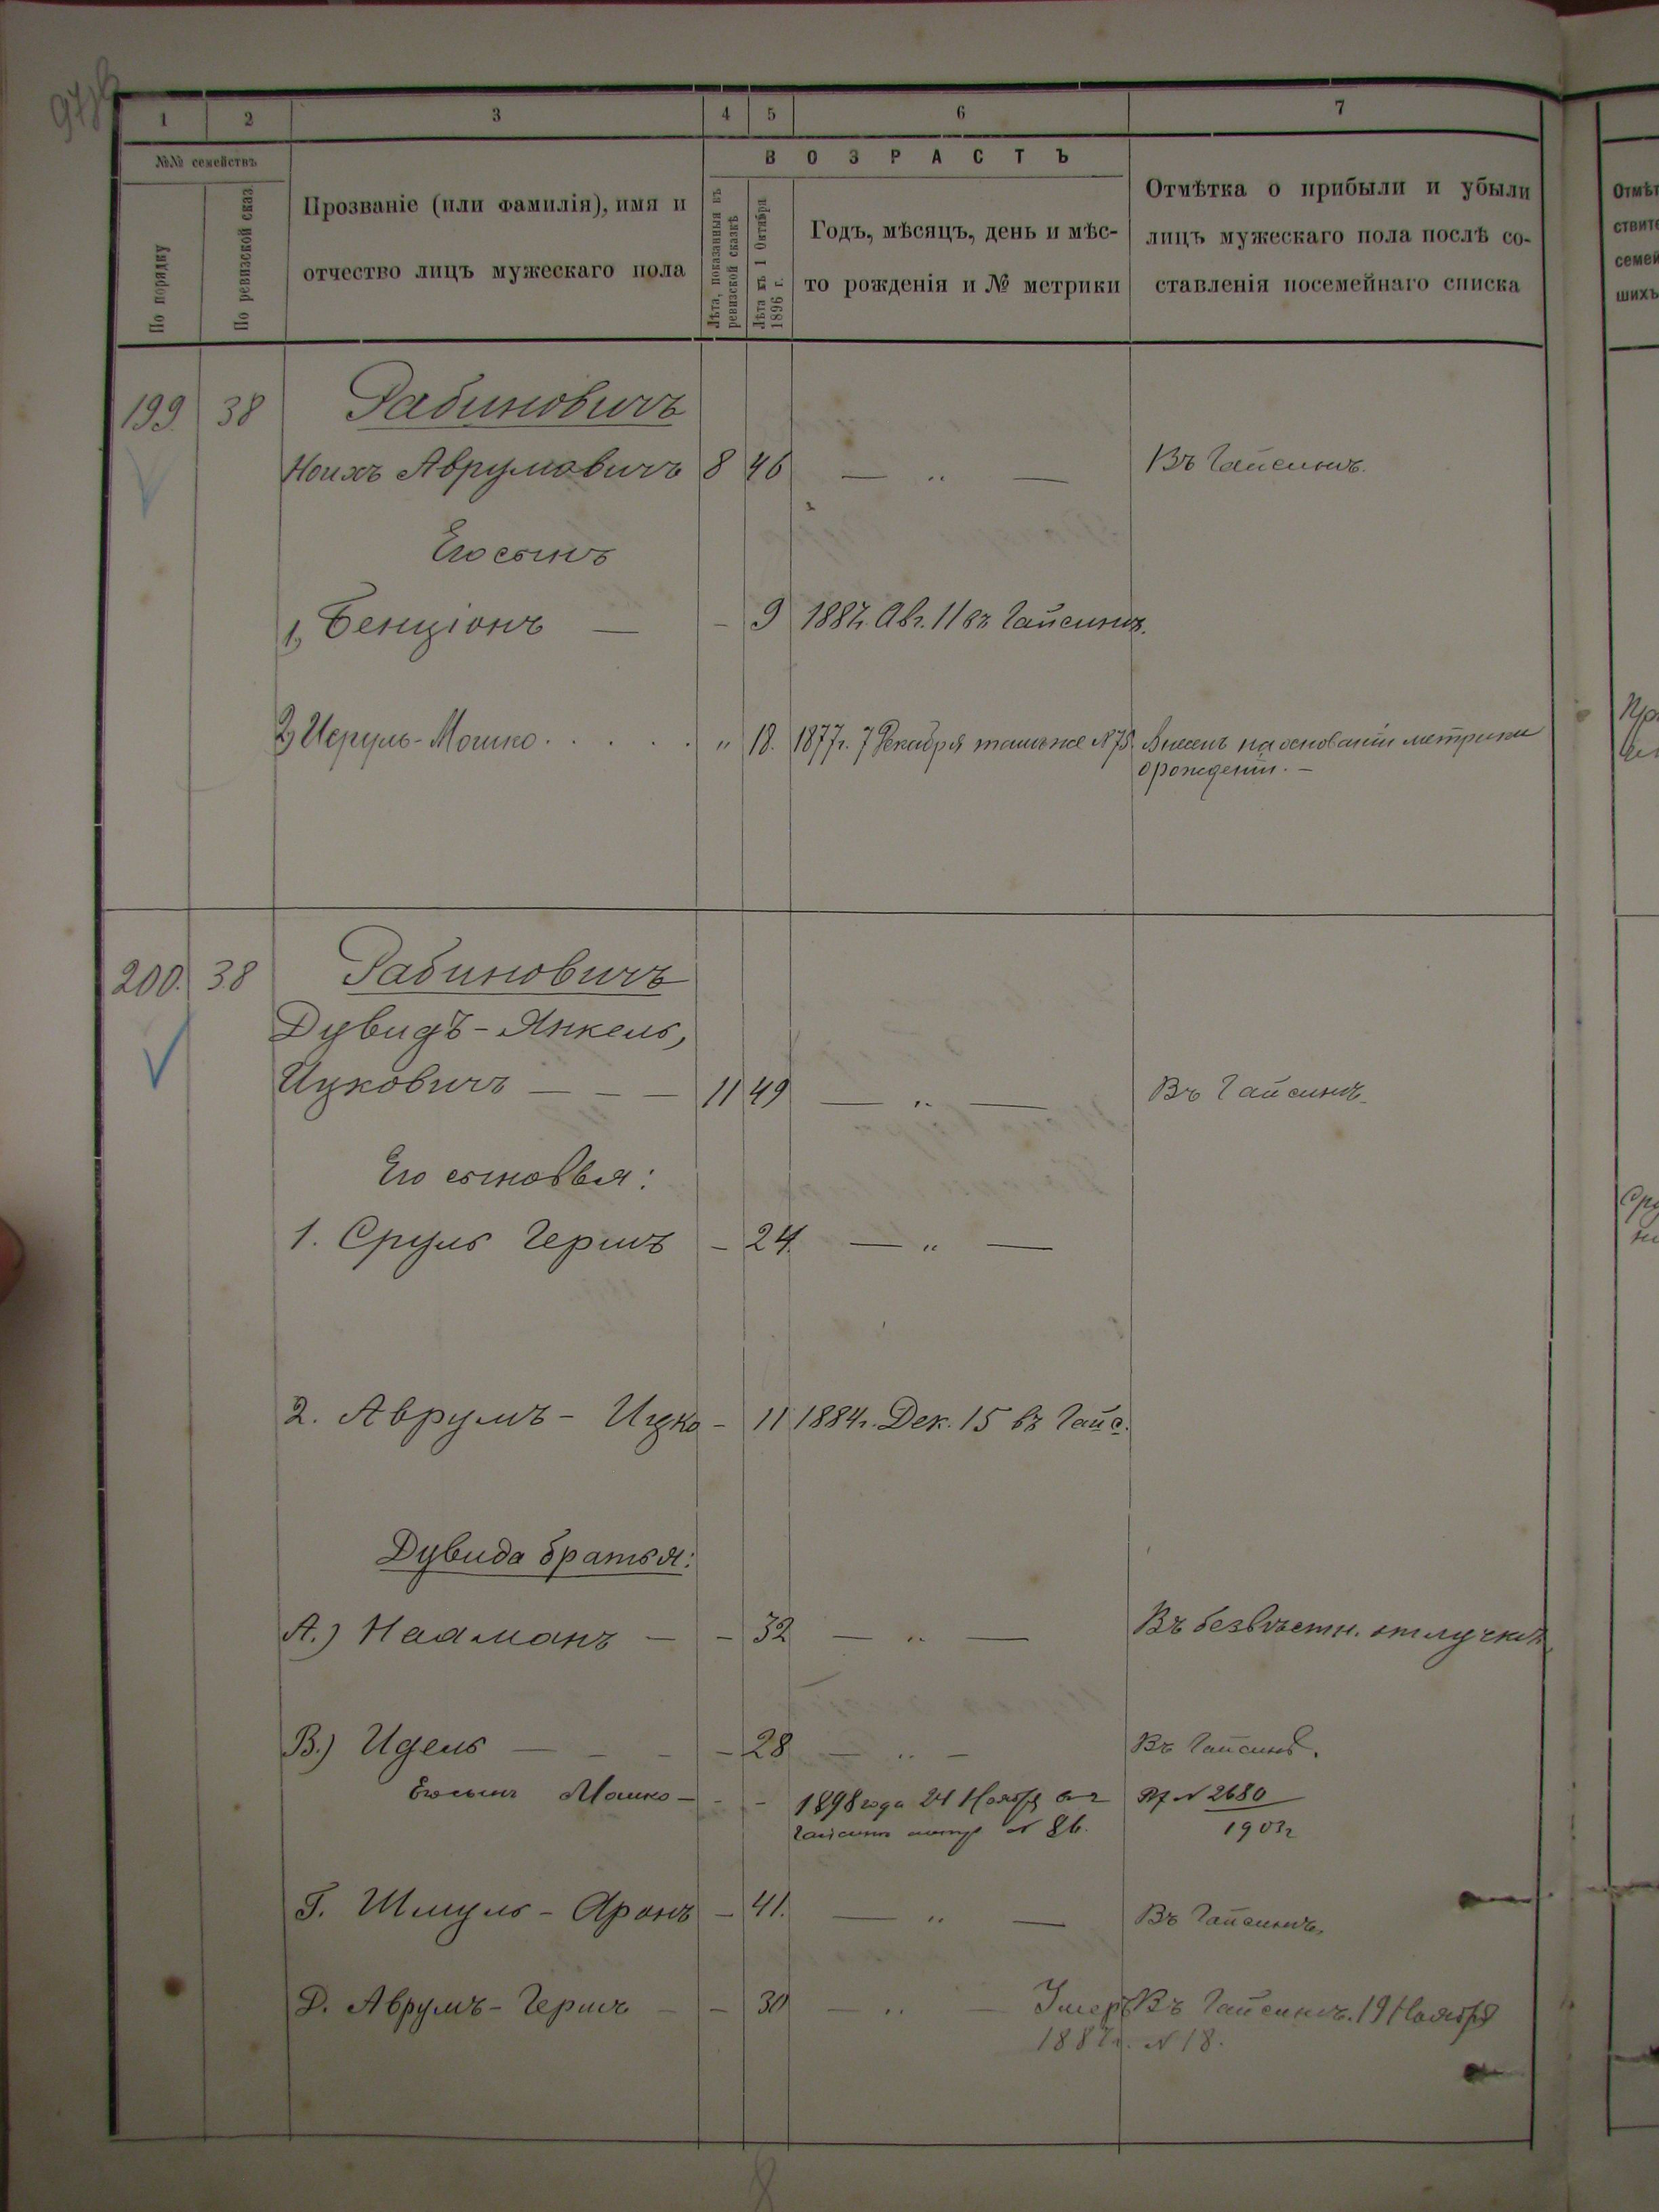 1 2 3 4 5 6 7
№№ семействъ
По порядку
По ревизской сказ
Прозваніе (или фамилія), имя и
отчество лицъ мужескаго пола
ВОЗРАСТЪ
Лѣта, показанныя въ
ревизской сказкѣ
Лѣта къ 1 Октября
1896 г.
Годъ, мѣсяцъ, день и мѣс-
то рожденія и № метрики
Отмѣтка о прибыли и убыли
лицъ мужескаго пола послѣ со-
ставленія посемейнаго списка
199. 38 Рабиновичъ
Ноихъ Аврумовичъ 8 46 — „ — Въ Гайсинѣ.
Его сынъ
1, Бенціонъ — - 9 1887г. Авг. 11 въ Гайсинѣ.
2, Исруль-Мошко . . . . . „ 18. 1877г. 7 Декабря тамъ же № 75. Внесенъ на основаніи метрики
о рожденіи. —
200. 38 Рабиновичъ
Дувидъ-Янкель,
Ицковичъ — — — 11 49 — „ — Въ Гайсинѣ.
Его сыновья:
1. Сруль Гершъ - 24. — „ —
2. Аврумъ - Ицко - 11 1884г. Дек. 15 въ Гайс.
Дувида братья:
А.) Нахманъ — - 32 — „ — Въ безвѣстн. отлучкѣ
В.) Идель — - - - 28 — „ — Въ Гайсинѣ.
Его сынъ Мошко — - - 1898 года 24 Ноября въ г № 2680
Гайсинѣ метр № 86. 1903г
Г. Шмуль - Аронъ - 41. — „ — Въ Гайсинѣ.
Д. Аврумъ - Гершъ - - 30 — „ — Умеръ Въ Гайсинѣ. 19 Ноября
1887г. № 18.